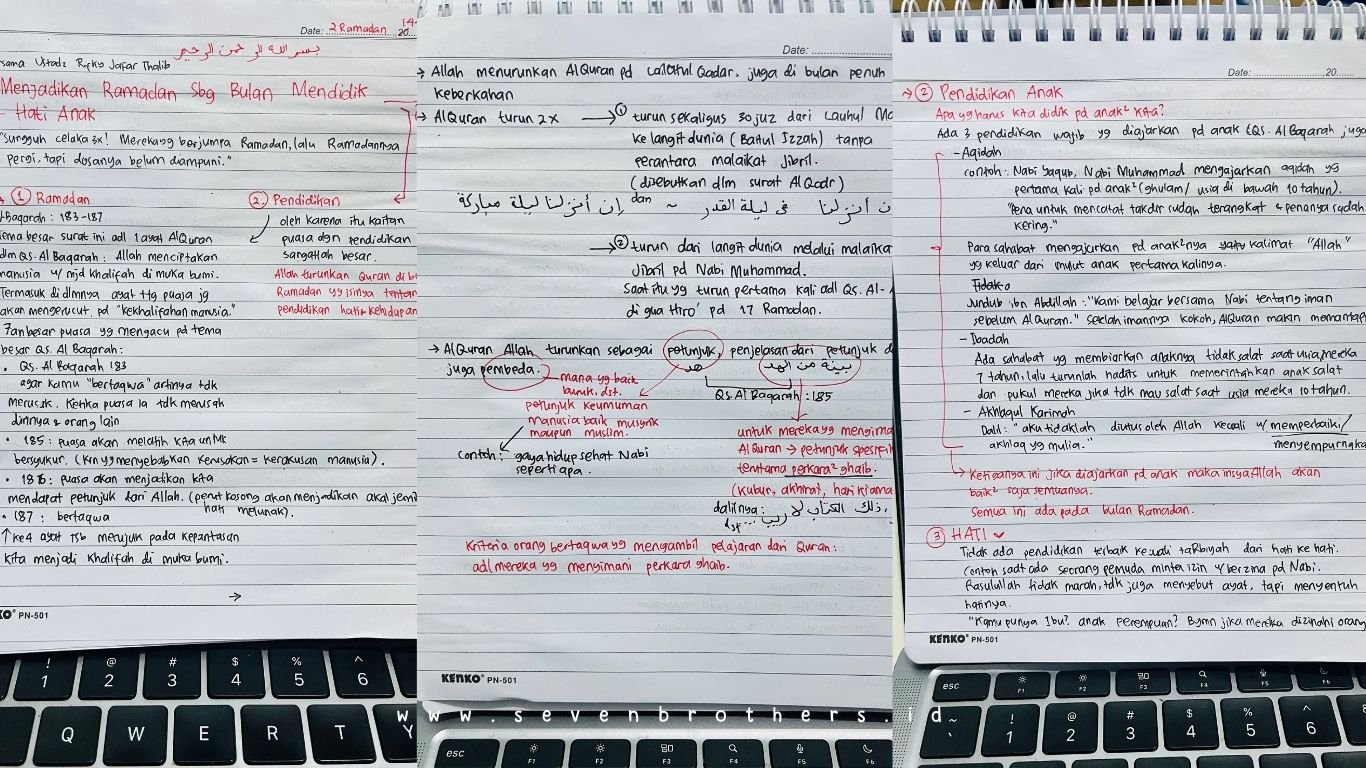 Date: 2 Ramadan 14.. 20
بسم الله الرحمن الرحيم
sama Ustadz Rifky Jafar Thalib
Menjadikan Ramadan Sbg Bulan Mendidik
Hati Anak
"Sungguh celaka 3x! Mereka yg berjumpa Ramadan, lalu Ramadannya
pergi, tapi dosanya belum diampuni."
① Ramadan
Baqarah : 183-187
ema besar surat ini adl 1 ayat AlQuran
dlm QS. Al Baqarah : Allah menciptakan
manusia u/ mjd khalifah di muka bumi.
Termasuk di dlmnya ayat ttg puasa jg
akan mengerucut pd "kekhalifahan manusia."
besar puasa yg mengacu pd tema
besar QS. Al Baqarah :
• QS. Al Baqarah 183
agar kamu "bertaqwa" artinya tdk
merusak. Ketika puasa ia tdk merusak
dirinya & orang lain
• 185 : puasa akan melatih kita untuk
bersyukur. (krn yg menyebabkan kerusakan = kerakusan manusia).
• 186 : puasa akan menjadikan kita
mendapat petunjuk dari Allah. (perut kosong akan menjadikan akal jerni
hati melunak).
• 187 : bertaqwa
↑ ke4 ayat tsb merujuk pada kepantasan
kita menjadi khalifah di muka bumi.
→
② Pendidikan
oleh karena itu kaitan
puasa dgn pendidikan
sangatlah besar.
Allah turunkan Quran di b
Ramadan yg isinya tentan
pendidikan hati & kehidupan
KO PN-501
Date:
→ Allah menurunkan AlQuran pd Lailatul Qadar, juga di bulan penuh
keberkahan
→ AlQuran turun 2x → ① turun sekaligus 30 juz dari Lauhul Ma
ke langit dunia (Baitul Izzah) tanpa
perantara malaikat Jibril.
(disebutkan dlm surat Al Qadr)
ن أنزلنا في ليلة القدر ~ dan إن أنزلنا ليلة مباركة
→ ② turun dari langit dunia melalui malaika
Jibril pd Nabi Muhammad.
saat itu yg turun pertama kali adl Qs. Al-A
di gua Hiro' pd 17 Ramadan.
→ AlQuran Allah turunkan sebagai petunjuk, penjelasan dari petunjuk d
juga pembeda.
هد
بينة من الهد
mana yg baik
buruk, dst.
Qs. Al Baqarah : 185
petunjuk keumuman
manusia baik musyrik
maupun muslim.
Contoh : gaya hidup sehat Nabi
seperti apa.
untuk mereka yg mengima
AlQuran → petunjuk spesifik
terutama perkara² ghaib.
(kubur, akhirat, hari kiama
dalilnya : ذلك الكتاب لا ريب
dst...
Kriteria orang bertaqwa yg mengambil pelajaran dari Quran :
adl mereka yg mengimani perkara ghaib.
KENKO PN-501
Date: 20
→ ② Pendidikan Anak
Apa yg harus kita didik pd anak² kita?
Ada 3 pendidikan wajib yg diajarkan pd anak (Qs. Al Baqarah jug
- Aqidah
contoh : Nabi Yaqub, Nabi Muhammad mengajarkan aqidah yg
pertama kali pd anak² (ghulam/ usia di bawah 10 tahun).
"Pena untuk mencatat takdir sudah terangkat & penanya sudah
kering."
Para sahabat mengajarkan pd anak²nya kalimat "Allah"
yg keluar dari mulut anak pertama kalinya.
Jundub ibn Abdillah : "Kami belajar bersama Nabi tentang iman
sebelum AlQuran." setelah imannya kokoh, AlQuran makin memantap
- Ibadah
Ada sahabat yg membiarkan anaknya tidak salat saat usia mereka
7 tahun, lalu turunlah hadits untuk memerintahkan anak salat
dan pukul mereka jika tdk mau salat saat usia mereka 10 tahun.
- Akhlaqul Karimah
Dalil : "aku tidaklah diutus oleh Allah kecuali u/ memperbaiki/
akhlaq yg mulia." menyempurnaka
→ Ketiganya ini jika diajarkan pd anak maka insyaAllah akan
baik² saja semuanya.
Semua ini ada pada bulan Ramadan.
③ HATI
Tidak ada pendidikan terbaik kecuali taRbiyah dari hati ke hati.
Contoh saat ada seorang pemuda minta izin u/ berzina pd Nabi.
Rasulullah tidak marah, tdk juga menyebut ayat, tapi menyentuh
hatinya.
"Kamu punya Ibu? anak perempuan? Bgmn jika mereka dizinahi orang
KENKO PN-501
www.sevenbrothers.id
! 1 @ 2 # 3 $ 4 % 5 ^ 6
Q W E R T Y
esc F1 F2 F3 F4 F5 F6
esc F1 F2 F3 F4 F5 F6
~ ` ! 1 @ 2 # 3 $ 4 % 5 ^ 6